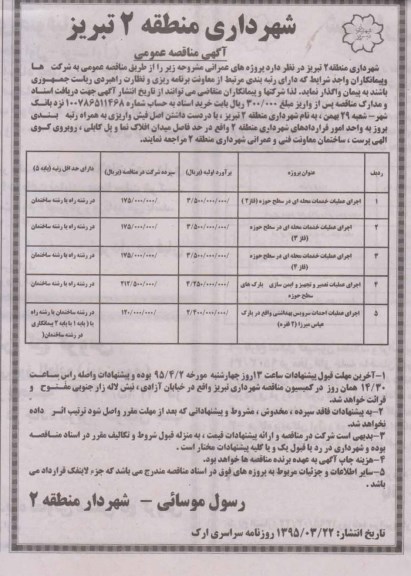 شهرداری منطقه ۲ تبریز
آگهی مناقصه عمومی
شهرداری منطقه۲ تبریز در نظر دارد پروژه های عمرانی مشروحه زیر را از طریق مناقصه عمومی به شرکت ها
وپیمانکاران واجد شرایط که دارای رتبه بندی مرتبط از معاونت برنامه ریزی و نظارت راهبردی ریاست جمهوری
باشند به پیمان واگذار نماید. لذا شرکتها و پیمانکاران متقاضی می توانند از تاریخ انتشار آگهی جهت دریافت اسناد
و مدارک مناقصه پس از واریز مبلغ ۳۰۰/۰۰۰ ریال بابت خرید اسناد به حساب شماره ۱۰۰۷۸۶۵۱۱۴۶۸ نزد بانک
شهر- شعبه ۲۹ بهمن ، به نام شهرداری منطقه ۲ تبریز ، با در دست داشتن اصل فیش واریزی به همراه رتبه بندی
بروز به واحد امور قراردادهای شهرداری منطقه ۲ واقع در حد فاصل میدان افلاک نما و پل کابلی ، روبروی کوی
الهی پرست ، ساختمان معاونت فنی و عمرانی شهرداری منطقه ۲ مراجعه نمایند.
ردیف عنوان پروژه برآورد اولیه (بریال) سپرده شرکت در مناقصه (بریال) دارای حداقل رتبه (پایه ۵)
۱ اجرای عملیات خدمات محله ای در سطح حوزه (فاز۲) ۳/۵۰۰/۰۰۰/۰۰۰ ۱۷۵/۰۰۰/۰۰۰ در رشته راه یا رشته ساختمان
۲ اجرای عملیات خدمات محله ای در سطح حوزه (فاز ۳) ۳/۵۰۰/۰۰۰/۰۰۰ ۱۷۵/۰۰۰/۰۰۰ در رشته راه یا رشته ساختمان
۳ اجرای عملیات خدمات محله ای در سطح حوزه (فاز ۴) ۳/۵۰۰/۰۰۰/۰۰۰ ۱۷۵/۰۰۰/۰۰۰ در رشته راه یا رشته ساختمان
۴ اجرای عملیات تعمیر و تجهیز و ایمن سازی پارک های سطح حوزه ۴/۲۵۰/۰۰۰/۰۰۰ ۲۱۲/۵۰۰/۰۰۰ در رشته راه یا رشته ساختمان
۵ اجرای عملیات احداث سرویس بهداشتی واقع در پارک عباس میرزا (۲ فقره) ۲/۴۰۰/۰۰۰/۰۰۰ ۱۲۰/۰۰۰/۰۰۰ در رشته ساختمان یا رشته راه یا ( پایه ۱ یا پایه ۲ پیمانکاری در رشته ساختمان)
۱-آخرین مهلت قبول پیشنهادات ساعت ۱۳روز چهارشنبه مورخه ۹۵/۴/۲ بوده و پیشنهادات واصله راس ساعت
۱۴/۳۰ همان روز در کمیسیون مناقصه شهرداری تبریز واقع در خیابان آزادی ، نبش لاله زار جنوبی مفتوح و
قرائت خواهد شد.
۲-به پیشنهادات فاقد سپرده ، مخدوش ، مشروط و پیشنهاداتی که بعد از مهلت مقرر واصل شود ترتیب اثر داده
نخواهد شد.
۳-بدیهی است شرکت در مناقصه و ارائه پیشنهادات قیمت ، به منزله قبول شروط و تکالیف مقرر در اسناد مناقصه
بوده و شهرداری در رد یا قبول یک و یا کلیه پیشنهادات مختار است .
۴-هزینه چاپ آگهی به عهده برنده مناقصه ها خواهد بود.
۵-سایر اطلاعات و جزئیات مربوط به پروژه های فوق در اسناد مناقصه مندرج می باشد که جزء لاینفک قرارداد می
باشد .
رسول موسائی - شهردار منطقه ۲
تاریخ انتشار: ۱۳۹۵/۰۳/۲۲ روزنامه سراسری ارک